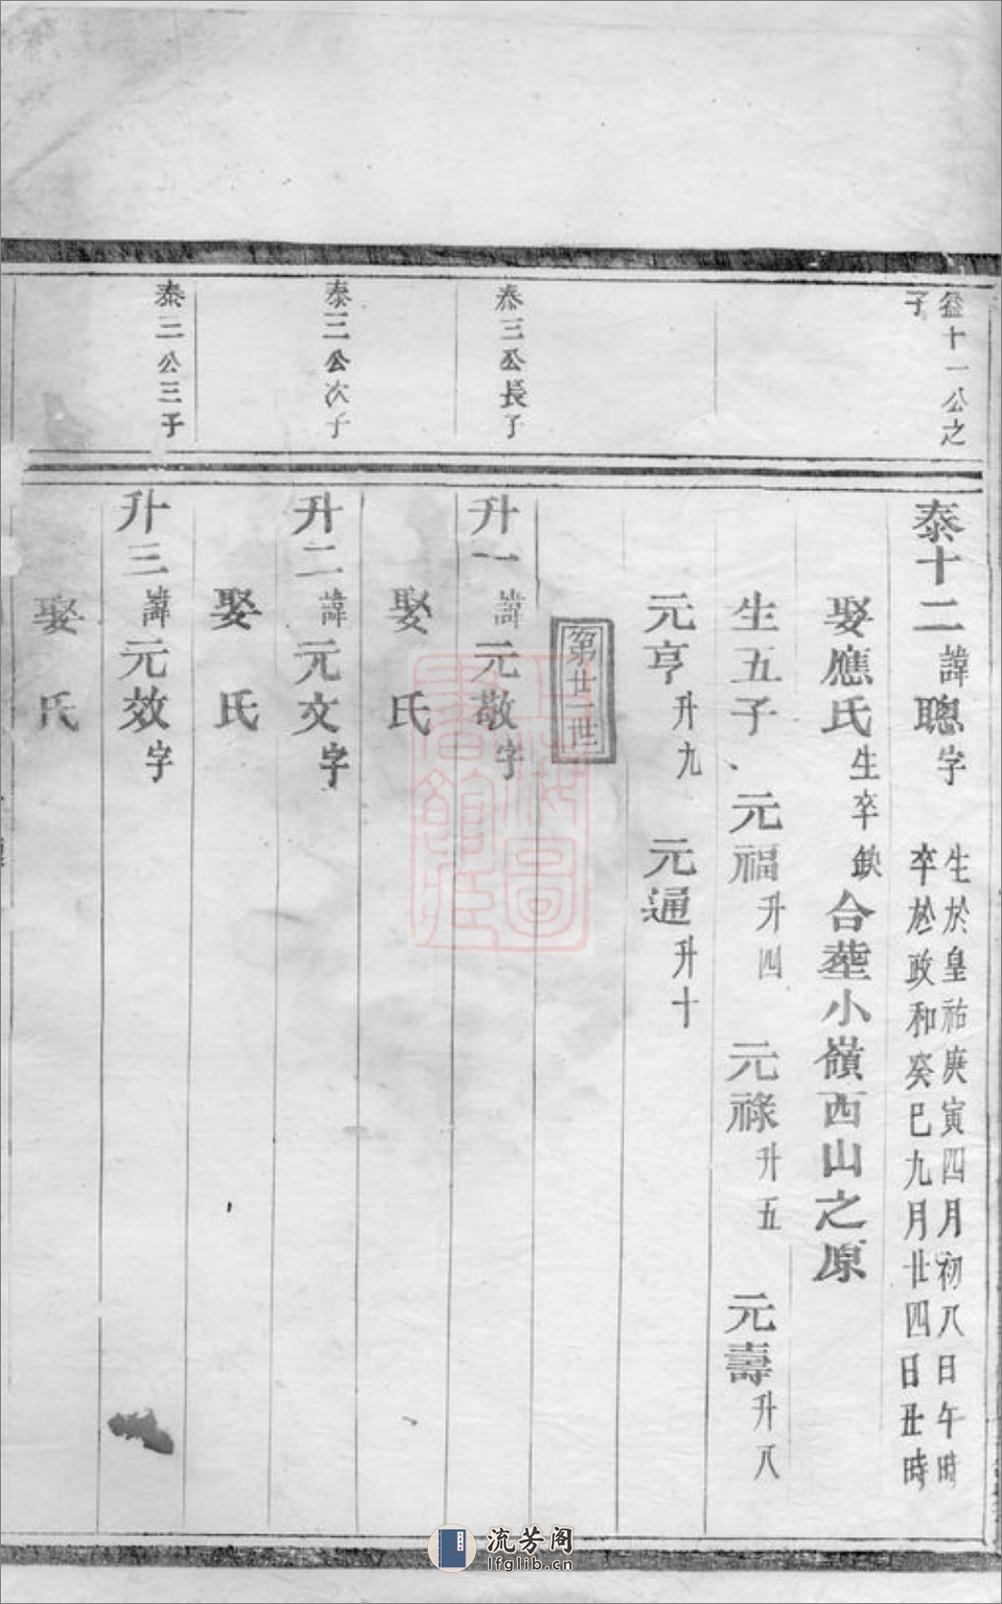 益十一公之
子
泰十二諱聰字
生於皇祐庚寅四月初八日午時
卒於政和癸巳九月廿四日丑時
娶應氏生卒缺合塟小嶺西山之原
生五子、元福升四 元祿升五 元壽升八
元亨升九 元通升十
第廿一世
泰三公長子
升一諱元敬字
娶氏
泰三公次子
升二諱元文字
娶氏
泰三公三子
升三諱元效字
娶氏
上海圖書館藏
流芳阁
lfglib.cn